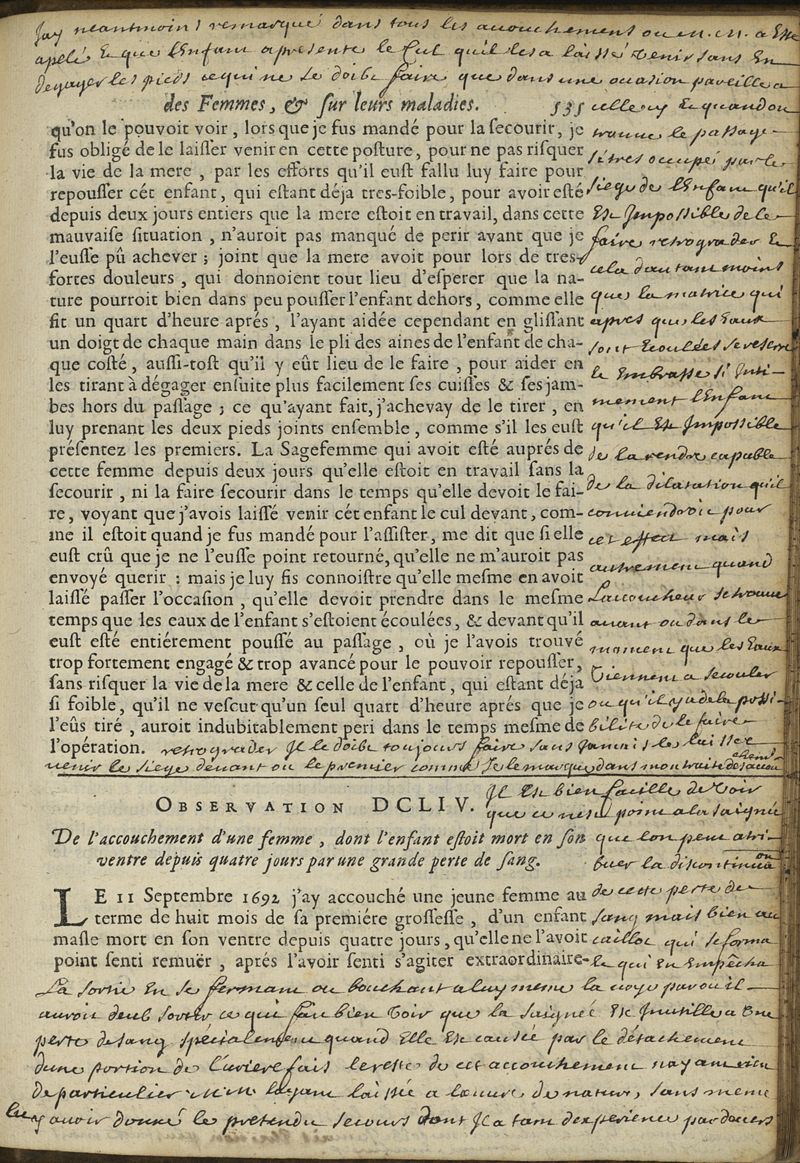 Jay neantmoins remarqué dans tous les acouchement ou m. m. a Este
apelé & que lEnfant apresenté le Cul quil les a laissé venir sans En
degager les pieds ce qui ne se doibt faire que dans une ocasion pareille a
des Femmes, & ſur leurs maladies. 535
qu'on le pouvoit voir, lorsque je fus mandé pour la ſecourir, je
fus obligé de le laiſſer venir en cette poſture, pour ne pas riſquer
la vie de la mere, par les efforts qu'il euſt fallu luy faire pour
repouſſer cét enfant, qui eſtant déja tres-foible, pour avoir eſté
depuis deux jours entiers que la mere eſtoit en travail, dans cette
mauvaiſe ſituation, n'auroit pas manqué de perir avant que je
l'euſſe pû achever; joint que la mere avoit pour lors de tres-
fortes douleurs, qui donnoient tout lieu d'eſperer que la na-
ture pourroit bien dans peu pouſſer l'enfant dehors, comme elle
fit un quart d'heure aprés, l'ayant aidée cependant en gliſſant
un doigt de chaque main dans le pli des aines de l'enfant de cha-
que coſté, auſſi-toſt qu'il y eût lieu de le faire, pour aider en
les tirant à dégager enſuite plus facilement ſes cuiſſes & ſes jam-
bes hors du paſſage; ce qu'ayant fait, j'achevay de le tirer, en
luy prenant les deux pieds joints enſemble, comme s'il les euſt
préſentez les premiers. La Sagefemme qui avoit eſté auprés de
cette femme depuis deux jours qu'elle eſtoit en travail ſans la
ſecourir, ni la faire ſecourir dans le temps qu'elle devoit le fai-
re, voyant que j'avois laiſſé venir cét enfant le cul devant, com-
me il eſtoit quand je fus mandé pour l'aſſiſter, me dit que ſi elle
euſt crû que je ne l'euſſe point retourné, qu'elle ne m'auroit pas
envoyé querir: mais je luy fis connoiſtre qu'elle meſme en avoit
laiſſé paſſer l'occaſion, qu'elle devoit prendre dans le meſme
temps que les eaux de l'enfant s'eſtoient écoulées, & devant qu'il
euſt eſté entiérement pouſſé au paſſage, où je l'avois trouvé
trop fortement engagé & trop avancé pour le pouvoir repouſſer,
ſans riſquer la vie de la mere & celle de l'enfant, qui eſtant déja
ſi foible, qu'il ne veſcut qu'un ſeul quart d'heure aprés que je
l'eûs tiré, auroit indubitablement peri dans le temps meſme de
l'opération.
celle cy & quand on
trouve le passage
si tres ocupé par le
siege de lEnfant qu'il
Est Impossible de le
faire retrograder &
cela dautant moins
que la matrice qui
apres que les Eaux
sont Ecoulées se reserre
& Embrasse si Inti-
mement lEnfant
qu'il Est Impossible
de la rendre capable
de la dilatation qu'il
conviendroit pour
cet effect mais
autrement quand
Lacoucheur se trouve
avant ou dans le
moment que les Eaux
viennent a secouler
ou qu'il y a de la possi
bilité de le faire
retrograder Il le doibt toujours faire sans Jamais le laisser
venir le siege devant ou le premier comme Je le marque dans mon traité des acouchemens
OBSERVATION DCLIV.
De l'accouchement d'une femme, dont l'enfant eſtoit mort en ſon
ventre depuis quatre jours par une grande perte de ſang.
LE 11 Septembre 1692 j'ay accouché une jeune femme au
terme de huit mois de ſa premiére groſſeſſe, d'un enfant
maſle mort en ſon ventre depuis quatre jours, qu'elle ne l'avoit
point ſenti remuër, aprés l'avoir ſenti s'agiter extraordinaire-
Il Est bien facille de voir
que ce nest point a la saignée
que lon peut atri-
buer la discontinuation
de cette perte de
sang mais bien au
cailloc qui se forma
& qui En Empêcha
La sortie En se fermant ou bouchant a luy meme la voye par ou il
auroit deub sortir ce qui fait bien voir que la saignée Est Inutille a Une
perte de sang specialement quand Elle Est causée par le détachement
dune portion de Larierefais le reste de cet accouchement nayant rien
de particulier m m layant laissé a loeuvre de nature, sans meme
luy avoir donné le pretendu secours dont Il a tant dexperience par devers